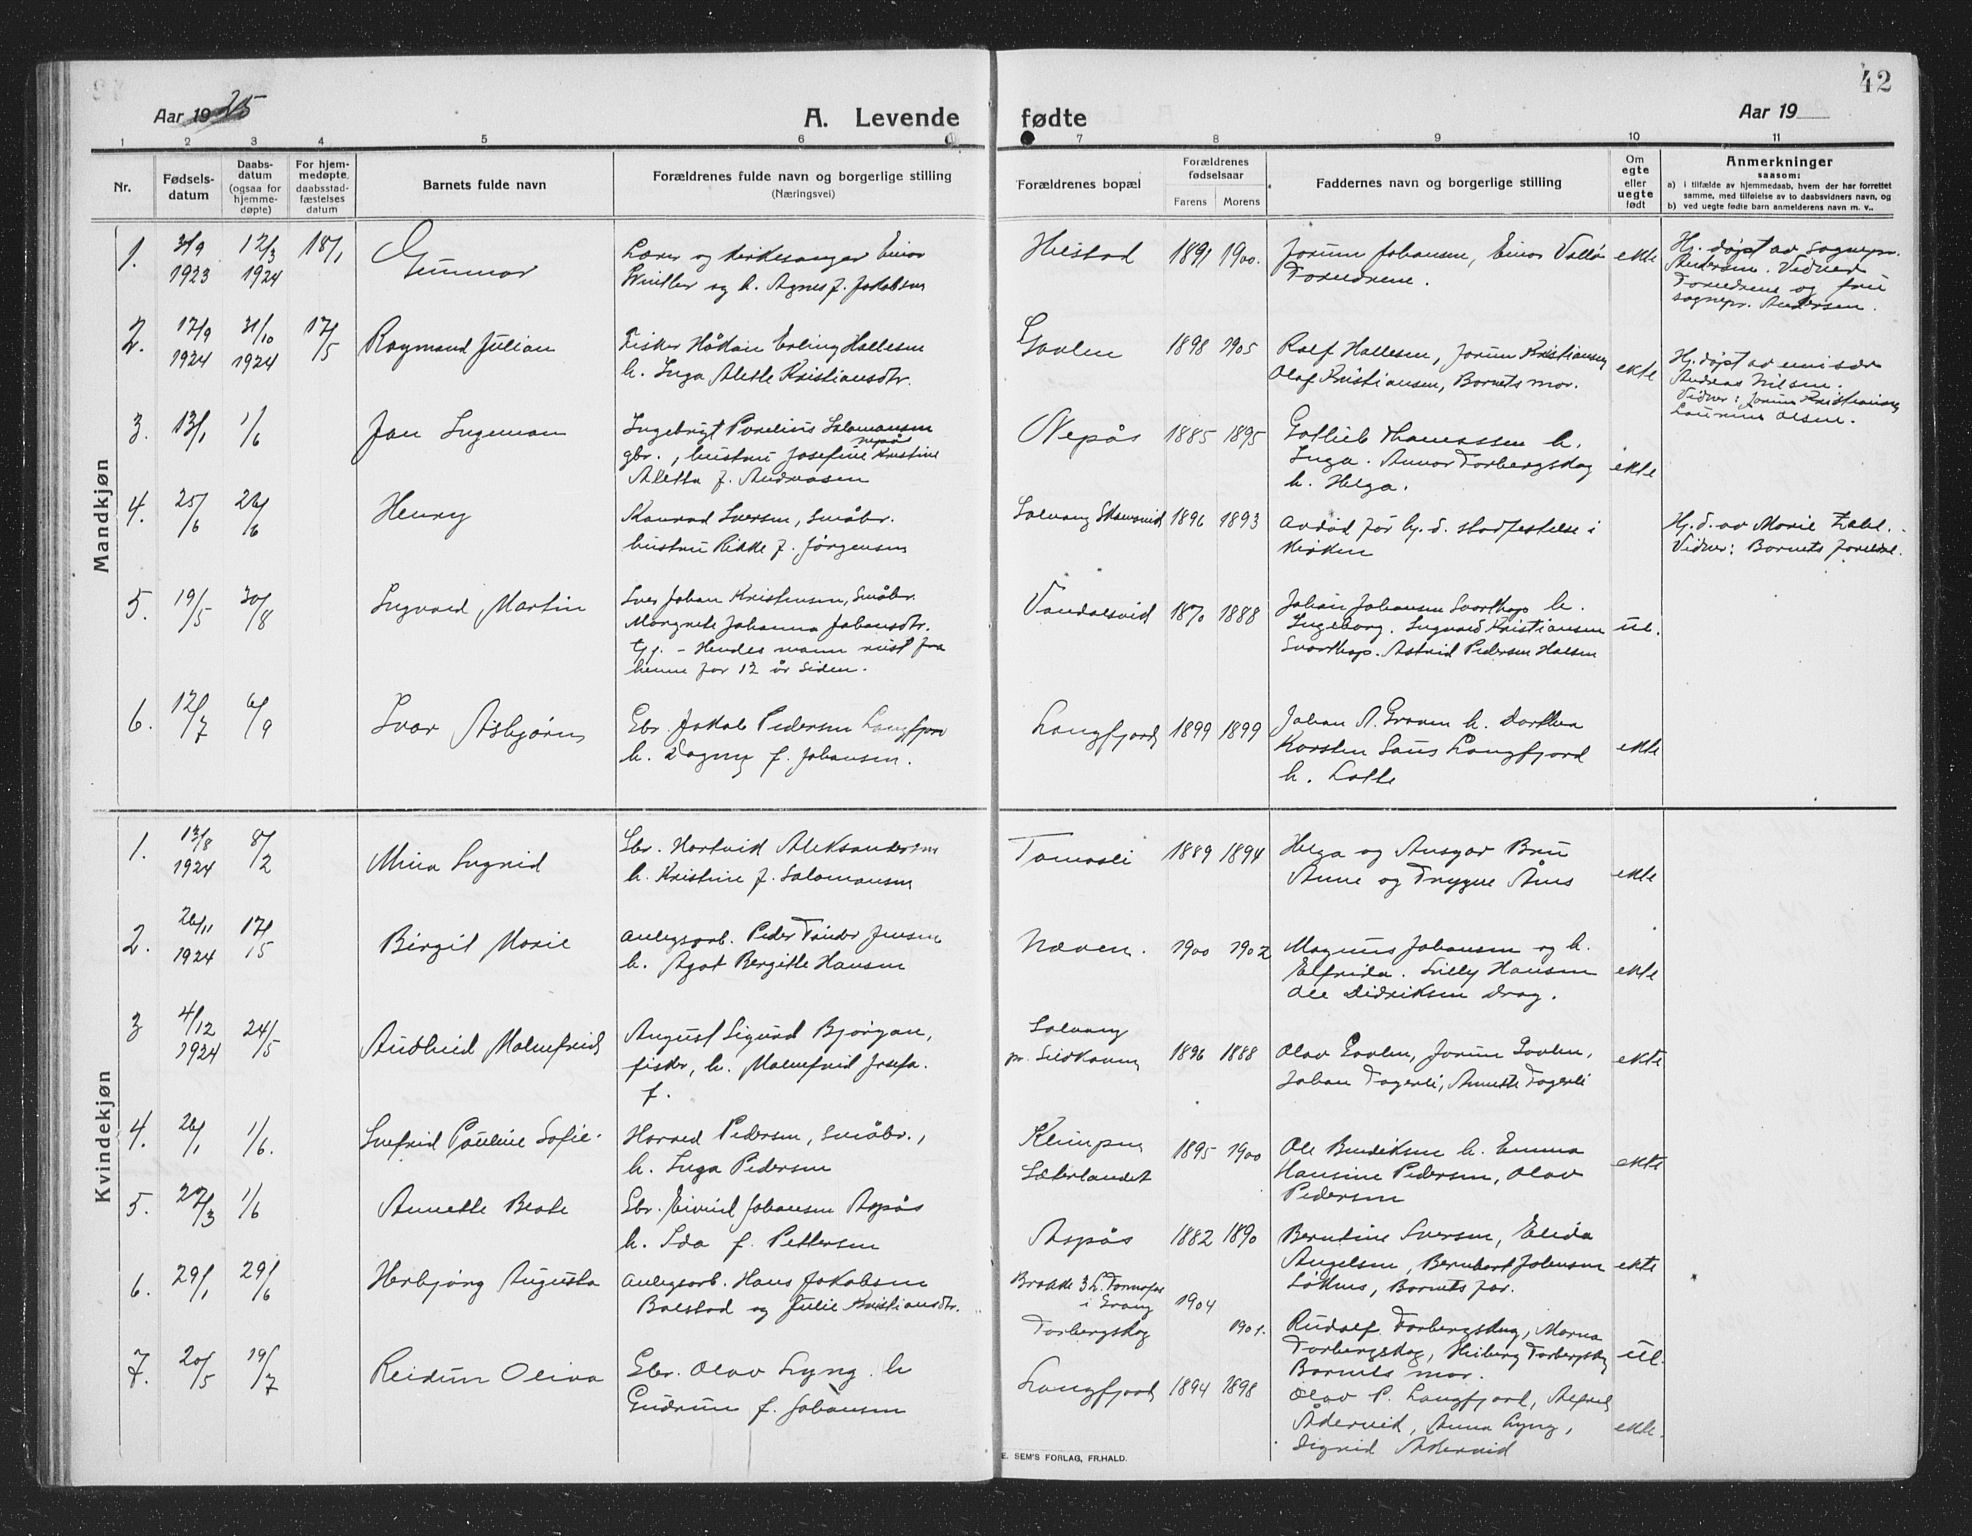 42
Aar 1925 A. Levende fødte Aar 19
1 2 3 4 5 6 7 8 9 10 11
Nr. Fødsels-datum Daabs-datum (ogsaa for hjemme-døpte) For hjem-medøpte, daabsstad-fæstelses datum Barnets fulde navn Forældrenes fulde navn og borgerlige stilling (Næringsvei) Forældrenes bopæl Forældrenes fødselsaar Farens Morens Faddernes navn og borgerlige stilling Om egte eller uegte født Anmerkninger saasom:
a) i tilfælde av hjemmedaab, hvem der har forrettet samme, med tilføielse av to daabsvidners navn, og
b) ved uegte fødte barn anmelderens navn m. v..
Mandkjøn
1. 31/9 1923 12/3 1924 18/1 Gunnar
Lærer og kirkesanger Einar
og h. Agnes f. Jakobsen
1891 1900.
Jorunn Johansen, Einar
Foreldrene. ekte
Hj. døpt av sognepr.
Andersen. Vidner
Foreldrene og fru
sognepr. Andersen.
2. 17/9 1924 31/10 1924 17/5 Raymond Julian
Fisker Håkon Erling Hallesen
h. Inga Alette Kristiansdtr.
1898 1905
Rolf Hallesen, Jorunn Kristiansen
Olaf Kristiansen, Barnets mor. ekte
Hj. døpt av emissær
Andreas Nilsen.
Vidner: Jorunn Kristiansen
Olsen.
3. 13/1 1/6 Jan Ingeman
Ingebrigt Parelius Salamonsen
gbr., Nepås hustru Josefine Kristine
Aletta f. Andreasen
Nepås 1885 1895
Gotlieb Thomassen h.
Inga. Annar Torbergskog
h. Helga. ekte
4. 25/6 26/6 Henry
Konrad Iversen, Småbr.
hustru Rikke f. Jørgensen
1896 1893
Avdød før hj. d. stadfestelse i
kirken
Hj. d. av Marie Zahl.
Vidner: Barnets foreldre.
5. 19/5 30/8 Ingvard Martin
Iver Johan Kristensen, Småbr.
Margrete Johanna Johansdtr.
Gj. - Hendes mann reist fra
henne for 12 år siden.
1870 1888
Johan Johansen Svarthop h.
Ingeborg. Ingvard Kristiansen
Svarthop. Astrid Pedersen Halsen ue.
6. 12/7 6/9 Ivar Asbjørn
Gbr. Jakob Pedersen Langfjord
h. Dagny f. Johansen.
Langfjord 1899 1899
Johan A. Graven h. Dorthea
Karsten Saus Langfjord
h. Lotte ekte
Kvindekjøn
1. 13/8 1924 8/2 Mina Ingrid
Gbr. Hartvik Aleksandersen
h. Kristine f. Salamonsen
1889 1894
Helga og Ansgar Bru
Anne og Trygve Åus ekte
2. 26/11 1924 17/5 Birgit Marie
Anlegsarb. Peder Jensen
h. Agot Bergitte Hansen
Næven. 1900 1902
Magnus Johansen og h.
Elfrida. Lilly Hansen
Ole Didriksen Drag. ekte
3 4/12 1924 24/5 Audhild Malmfrid
August Sigurd Bjørgan,
fisker, h. Malmfrid Josefa.
f.
Solvang
pr. 1896 1888
Olav Govlen, Jorunn Govlen,
Johan Fagerli, Annette Fagerli ekte
4. 26/1 1/6. Sofie.
Harald Pedersen, Småbr.,
h. Inga Pedersen
Sæterlandet 1895 1900
Ole Bendiksen h. Emma
Hansine Pedersen, Olav
Pedersen ekte
5. 27/3 1/6 Annette Beate
Gbr. Eivind Johansen Aspås
h. Ida f. Pettersen
Aspås 1882 1890
Berntine Iversen, Elida
Angelsen, Bernhart Johansen
Barnets far. ekte
6. 29/1 29/6 Herbjørg Augusta
Anlegsarb. Hans Jakobsen
Balstad og Julie Kristiansdtr.
Brakke 3
i Grong 1904
Torbergskog 1901.
Rudolf Torbergskog, Marna
Torbergskog, Heiberg Torbergskog
Barnets mor. ue.
7. 20/5 19/7 Reidun Oliva
Gbr. Olav Lyng. h
Gudrun f. Johansen
Langfjord 1894 1898
Olav P. Langfjord, Alfred
Åkervik, Anna Lyng,
Signid Åkervik ekte.
E. SEM'S FORLAG, FR.HALD.